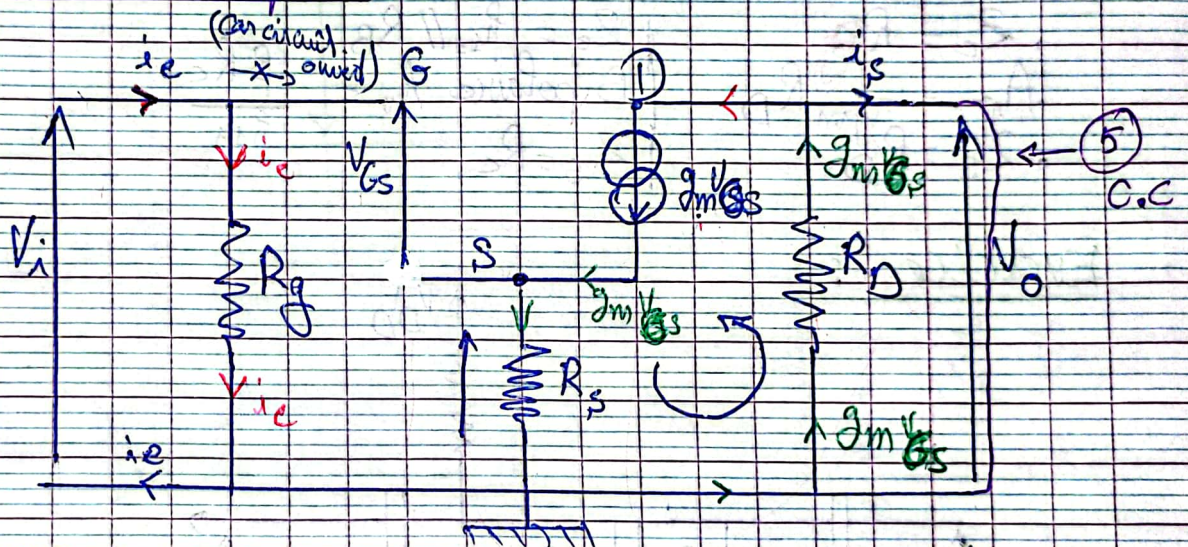 (car circuit
ouvert)
ie
G
D
is
ie
VGS
gmVGS
gmVGS
5
C.C
Vi
Rg
S
gmVGS
RD
Vo
RS
ie
ie
gmVGS